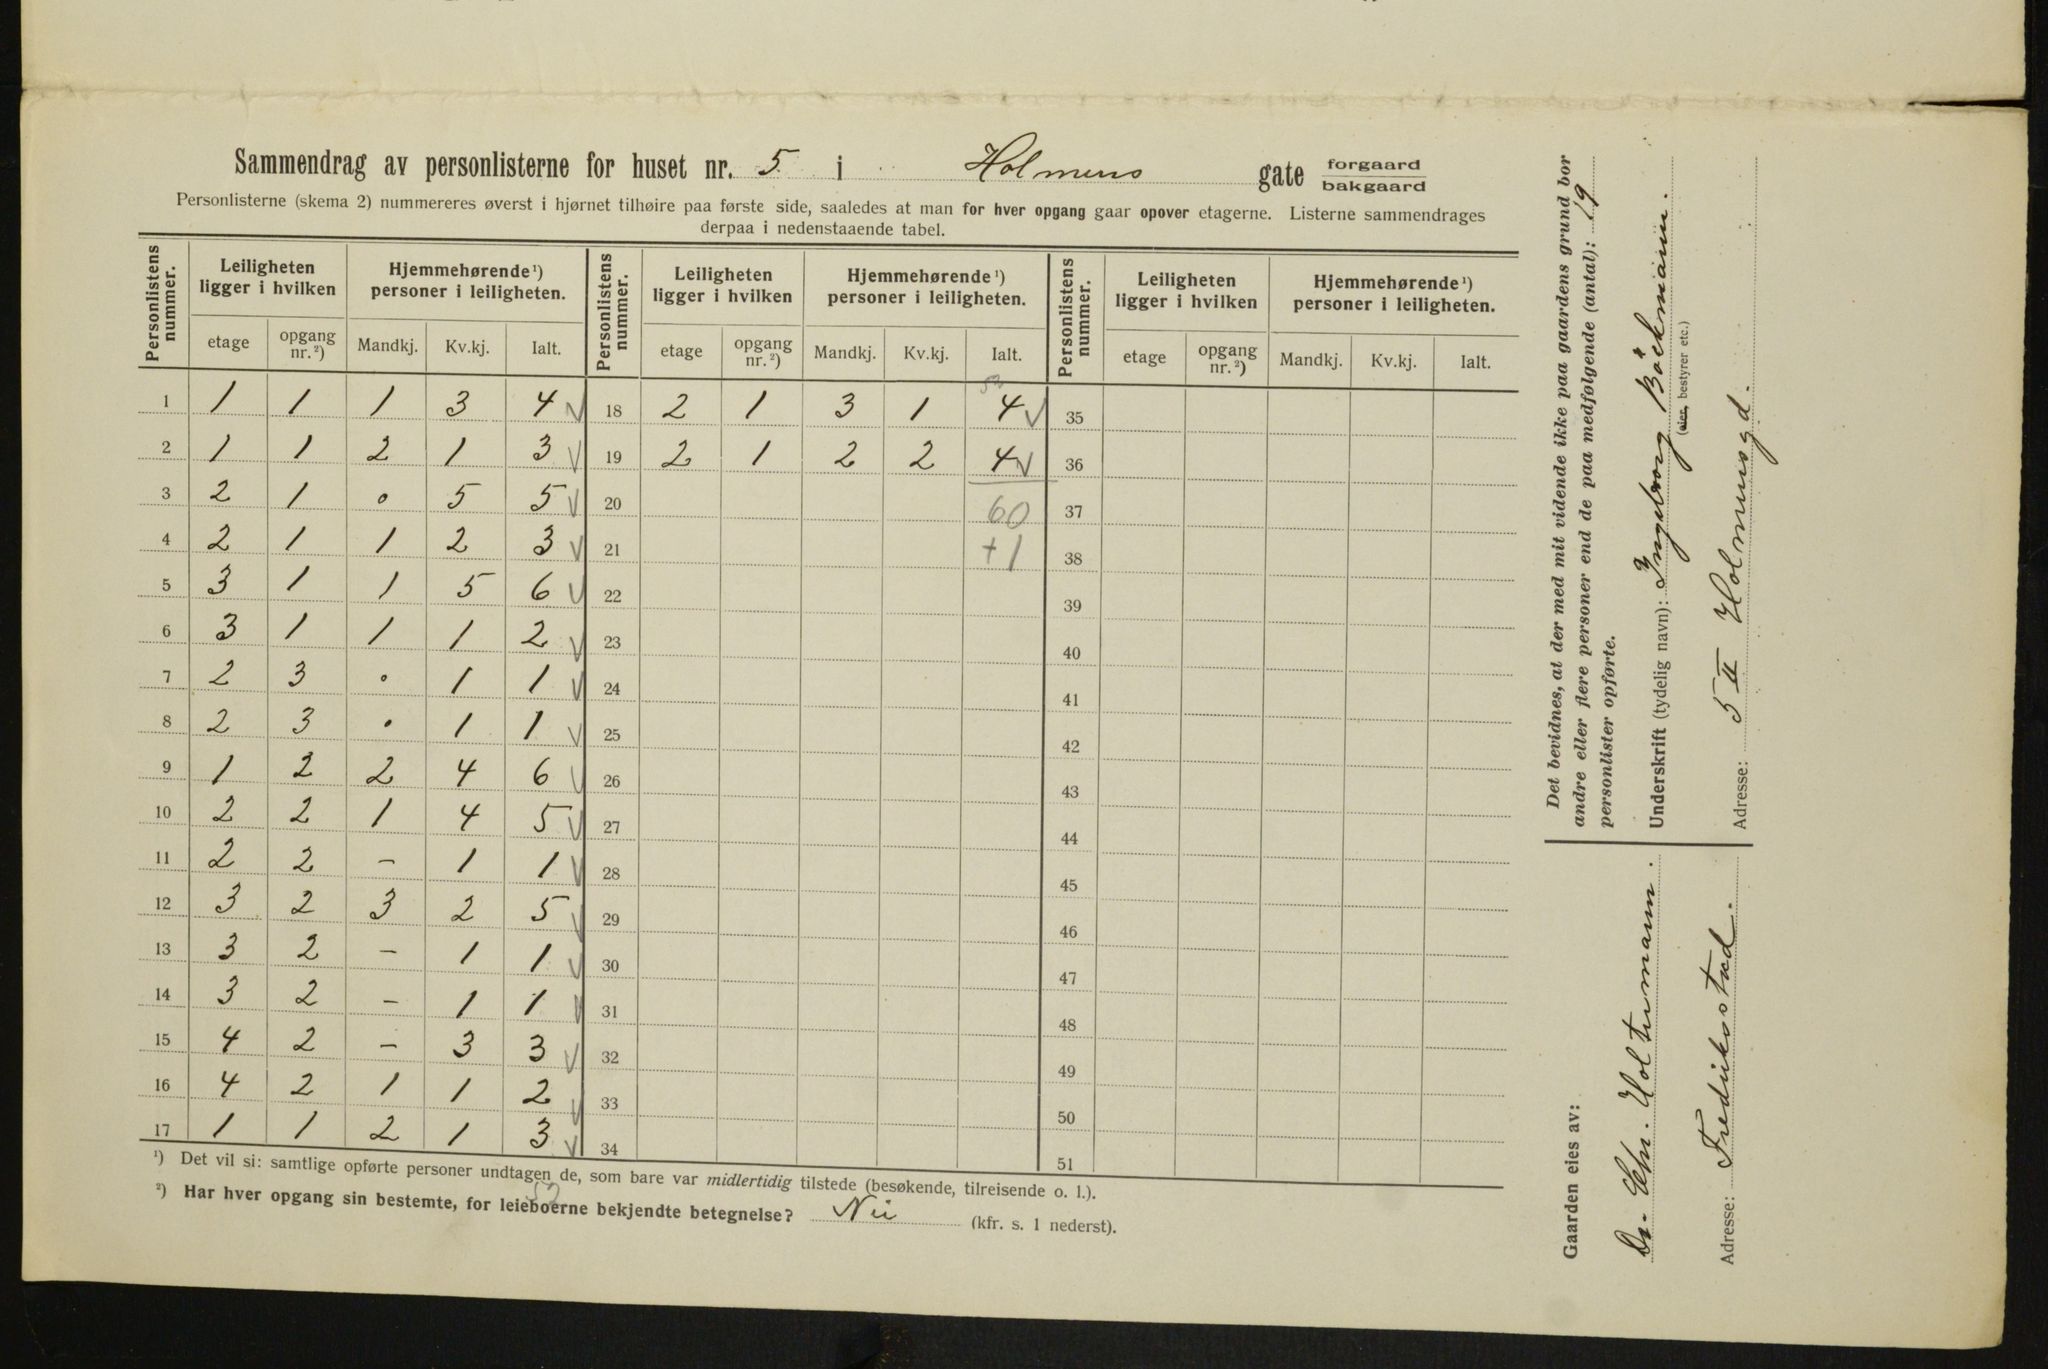 Sammendrag av personlisterne for huset nr. 5. i Holmens gate forgaard
bakgaard
Personlisterne (skema 2) nummereres øverst i hjørnet tilhøire paa første side, saaledes at man for hver opgang gaar opover etagerne. Listerne sammendrages
derpaa i nedenstaaende tabel.
Personlistens nummer. Leiligheten ligger i hvilken Hjemmehørende ¹) personer i leiligheten. Personlistens nummer. Leiligheten ligger i hvilken Hjemmehørende ¹) personer i leiligheten. Personlistens nummer. Leiligheten ligger i hvilken Hjemmehørende ¹) personer i leiligheten.
etage opgang nr. ²) Mandkj. Kv.kj. Ialt. etage opgang nr. ²) Mandkj. Kv.kj. Ialt. etage opgang nr. ²) Mandkj. Kv.kj. Ialt.
52
1 1 1 1 3 4 √ 18 2 1 3 1 4 √ 35
2 1 1 2 1 3 √ 19 2 1 2 2 4 √ 36
3 2 1 • 5 5 √ 20 60 37
4 2 1 1 2 3 √ 21 +1 38
5 3 1 1 5 6 √ 22 39
6 3 1 1 1 2 √ 23 40
7 2 3 • 1 1 √ 24 41
8 2 3 • 1 1 √ 25 42
9 1 2 2 4 6 √ 26 43
10 2 2 1 4 5 √ 27 44
11 2 2 – 1 1 √ 28 45
12 3 2 3 2 5 √ 29 46
13 3 2 – 1 1 √ 30 47
14 3 2 – 1 1 √ 31 48
15 4 2 – 3 3 √ 32 49
16 4 2 1 1 2 √ 33 50
17 1 1 2 1 3 √ 34 51
¹) Det vil si: samtlige opførte personer undtagen de, som bare var midlertidig tilstede (besøkende, tilreisende o. l.).
52
²) Har hver opgang sin bestemte, for leieboerne bekjendte betegnelse? Nei (kfr. s. 1 nederst).
Det bevidnes, at der med mit vidende ikke paa gaardens grund bor
andre eller flere personer end de paa medfølgende (antal): 19
personlister opførte.
Underskrift (tydelig navn): Ingeborg Böckmann.
(eier, bestyrer etc.)
Adresse: 5 II Holmensgd.
Gaarden eies av:
Dr. Chr. Holtermann.
Adresse: Fredriksstad.